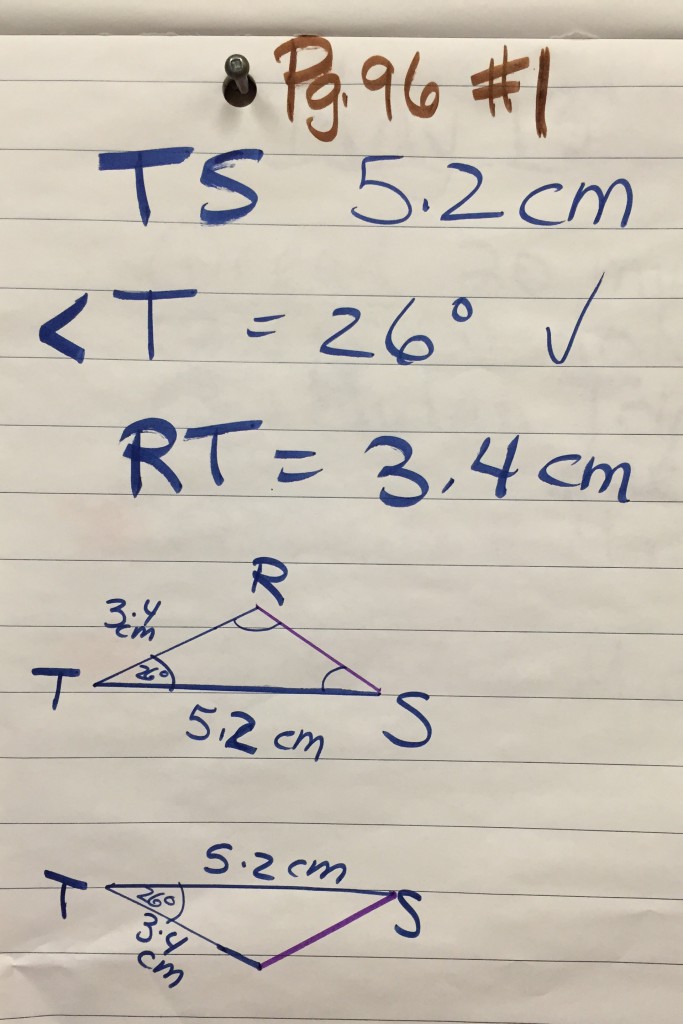 Pg. 96 #1
TS 5.2 cm
<T = 26° ✓
RT = 3.4 cm
R
3.4
cm
26°
T
S
5.2 cm
5.2 cm
T
26°
S
3.4
cm